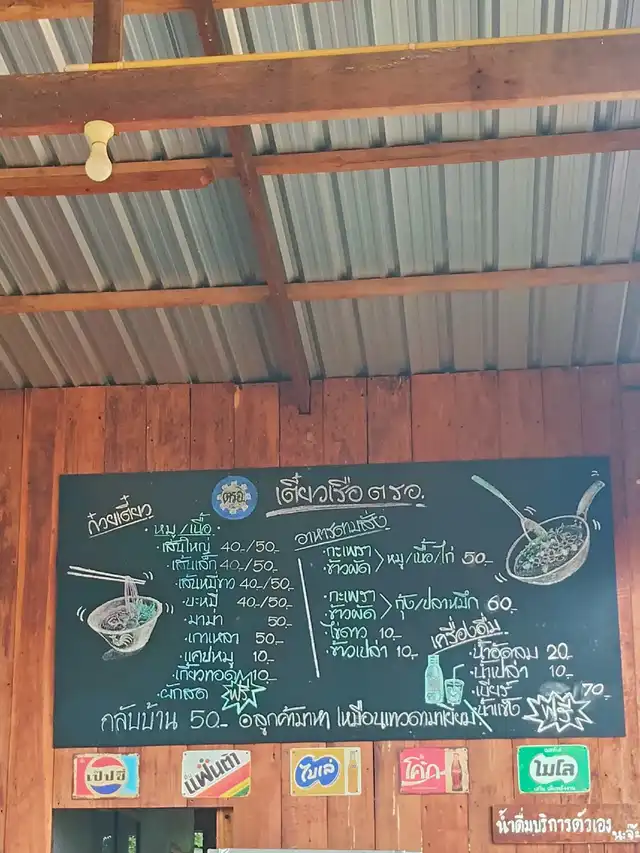 ตรอ.
เตี๋ยวเรือ ตรอ.
ก๋วยเตี๋ยว
· หมู/เนื้อ ·
· เส้นใหญ่ 40-/50-
· เส้นเล็ก 40-/50-
· เส้นหมี่ขาว 40-/50-
· บะหมี่ 40-/50-
· มาม่า 50
· เกาเหลา 50-
· แคปหมู 10-
· เกี๊ยวทอด 10-
· ผักสด ฟรี
อาหารตามสั่ง
· กะเพรา
· ข้าวผัด > หมู/เนื้อ/ไก่ 50-
· กะเพรา
· ข้าวผัด > กุ้ง/ปลาหมึก 60-
· ไข่ดาว 10-
· ข้าวเปล่า 10-
เครื่องดื่ม
· น้ำอัดลม 20-
· น้ำเปล่า 10-
· เบียร์ 70-
· น้ำแข็ง ฟรี
กลับบ้าน 50- ๏ลูกค้ามาหา เหมือนเทวดามาเยี่ยม
เป๊ปซี่
แฟนต้า
ไบเล่
โค้ก
ไมโล
น้ำดื่มบริการตัวเอง
นะจ๊ะ